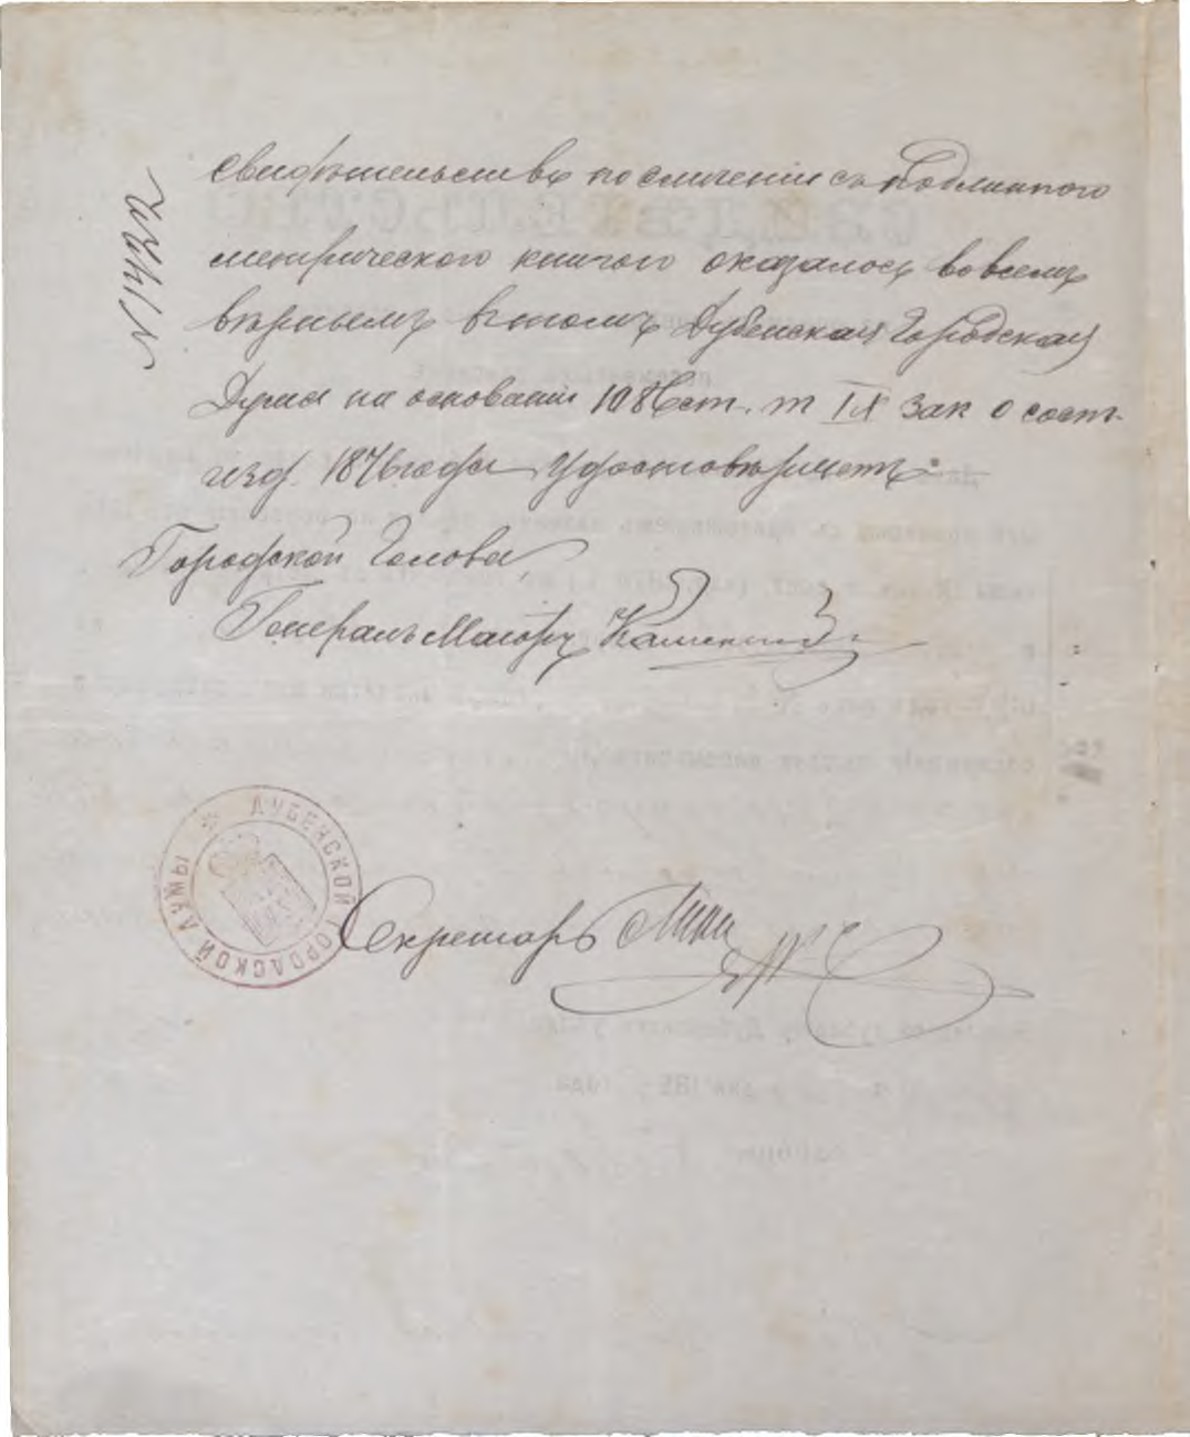 N 1422
свидѣтельствѣ по сличеніи съ подлинною
метрическою книгою оказалось во всемъ
вѣрнымъ въ томъ Дубенская Городская
Дума на основаніи 1086 ст. т IX Зак о сост.
изд. 1876 года удостовѣряетъ.
Городской Голова,
Генералъ Маіоръ
ДУБЕНСКОЙ ГОРОДСКОЙ ДУМЫ
Секретарь